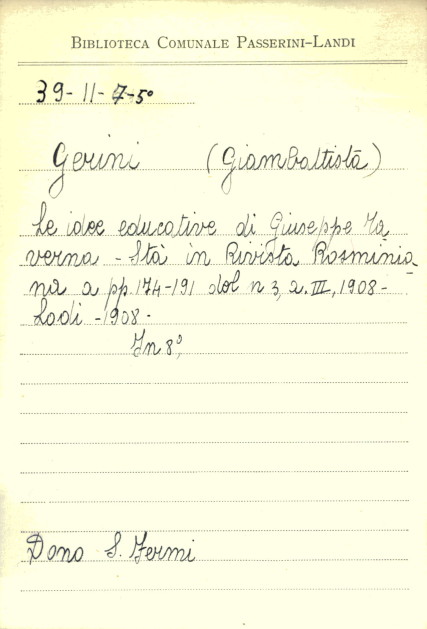 BIBLIOTECA COMUNALE PASSERINI-LANDI
39-11-7-5°
Gerini (Giambattista)
Le idee educative di Giuseppe Ta
verna - Stà in Rivista Rosminia
na a pp. 174-191 del n 3, a. III, 1908-
Lodi - 1908-
In 8°,
Dono S. Fermi